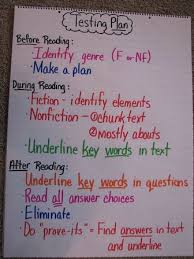 Testing Plan
Before Reading:
• Identify genre (F or NF)
• Make a plan
During Reading:
• Fiction - identify elements
• Nonfiction - ① chunk text
② mostly abouts
• Underline key words in text
After Reading:
• Underline key words in questions
• Read all answer choices
• Eliminate
• Do "prove-its" = Find answers in text
and underline